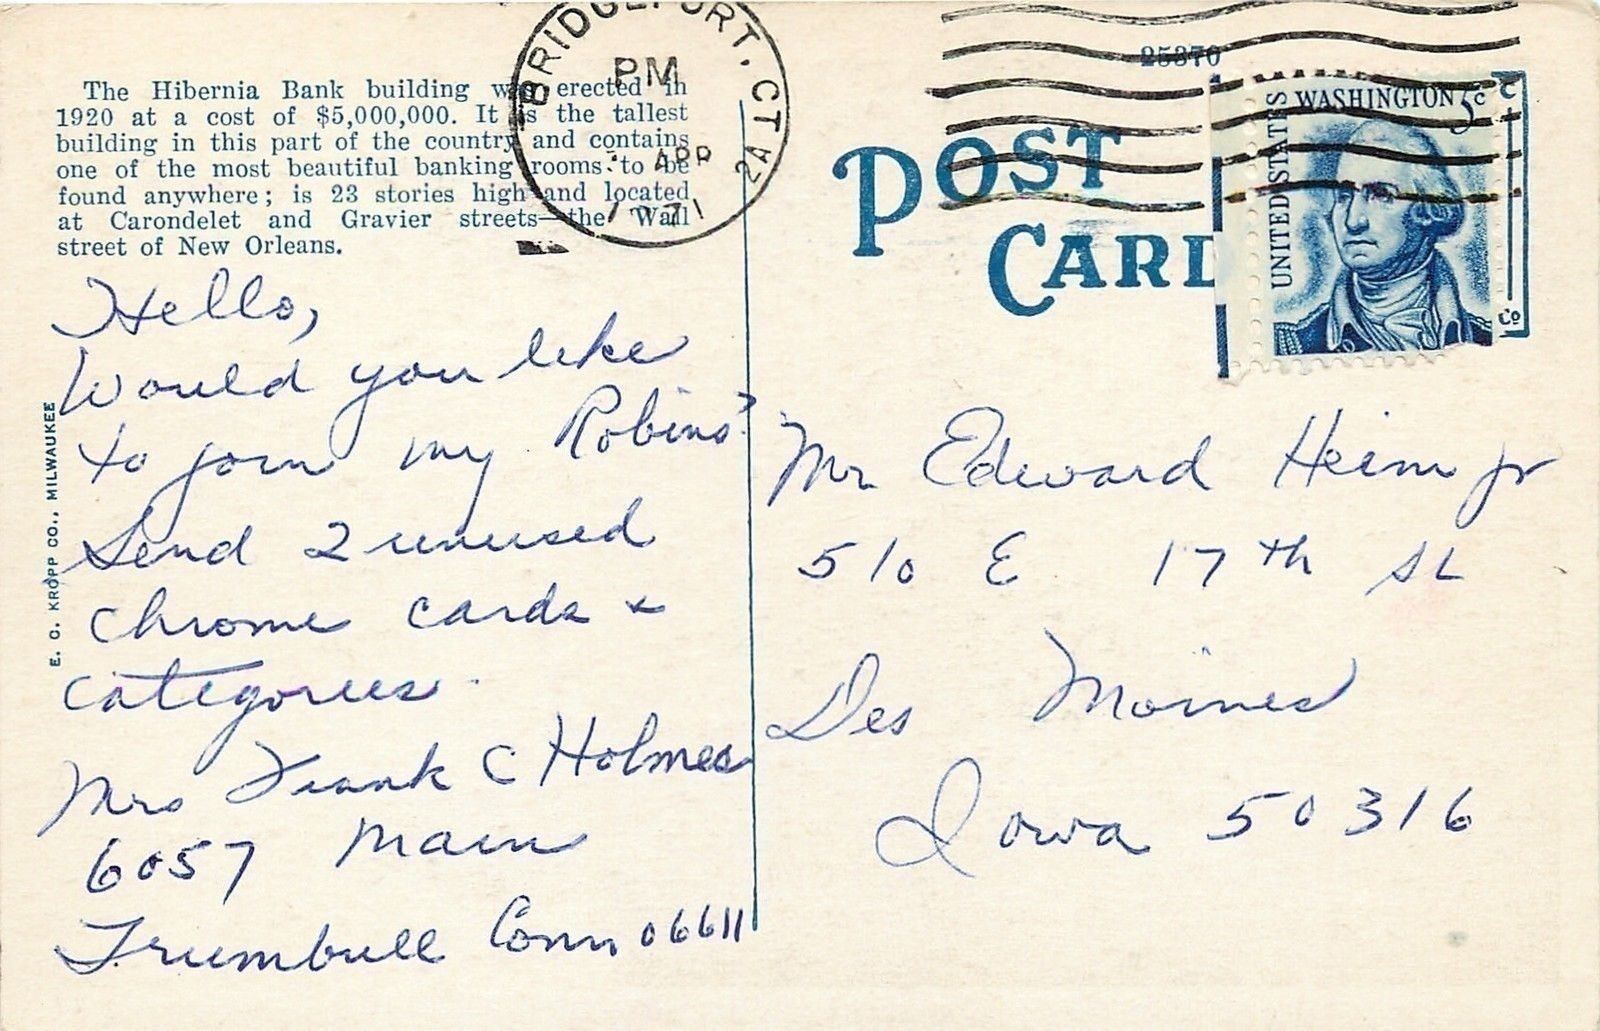 The Hibernia Bank building was erected in
1920 at a cost of $5,000,000. It is the tallest
building in this part of the country and contains
one of the most beautiful banking rooms to be
found anywhere; is 23 stories high and located
at Carondelet and Gravier streets—the Wall
street of New Orleans.
Hello,
Would you like
to join my Robins?
Send 2 unused
chrome cards &
categories.
Mrs Frank C Holmes
6057 Main
Trumbull Conn 06611
E. C. KROPP CO., MILWAUKEE
BRIDGEPORT, CT
PM
APR
71
25370
POST
CARD
UNITED STATES
WASHINGTON 5c
Mr Edward Heim Jr
510 E 17th St
Des Moines
Iowa 50316